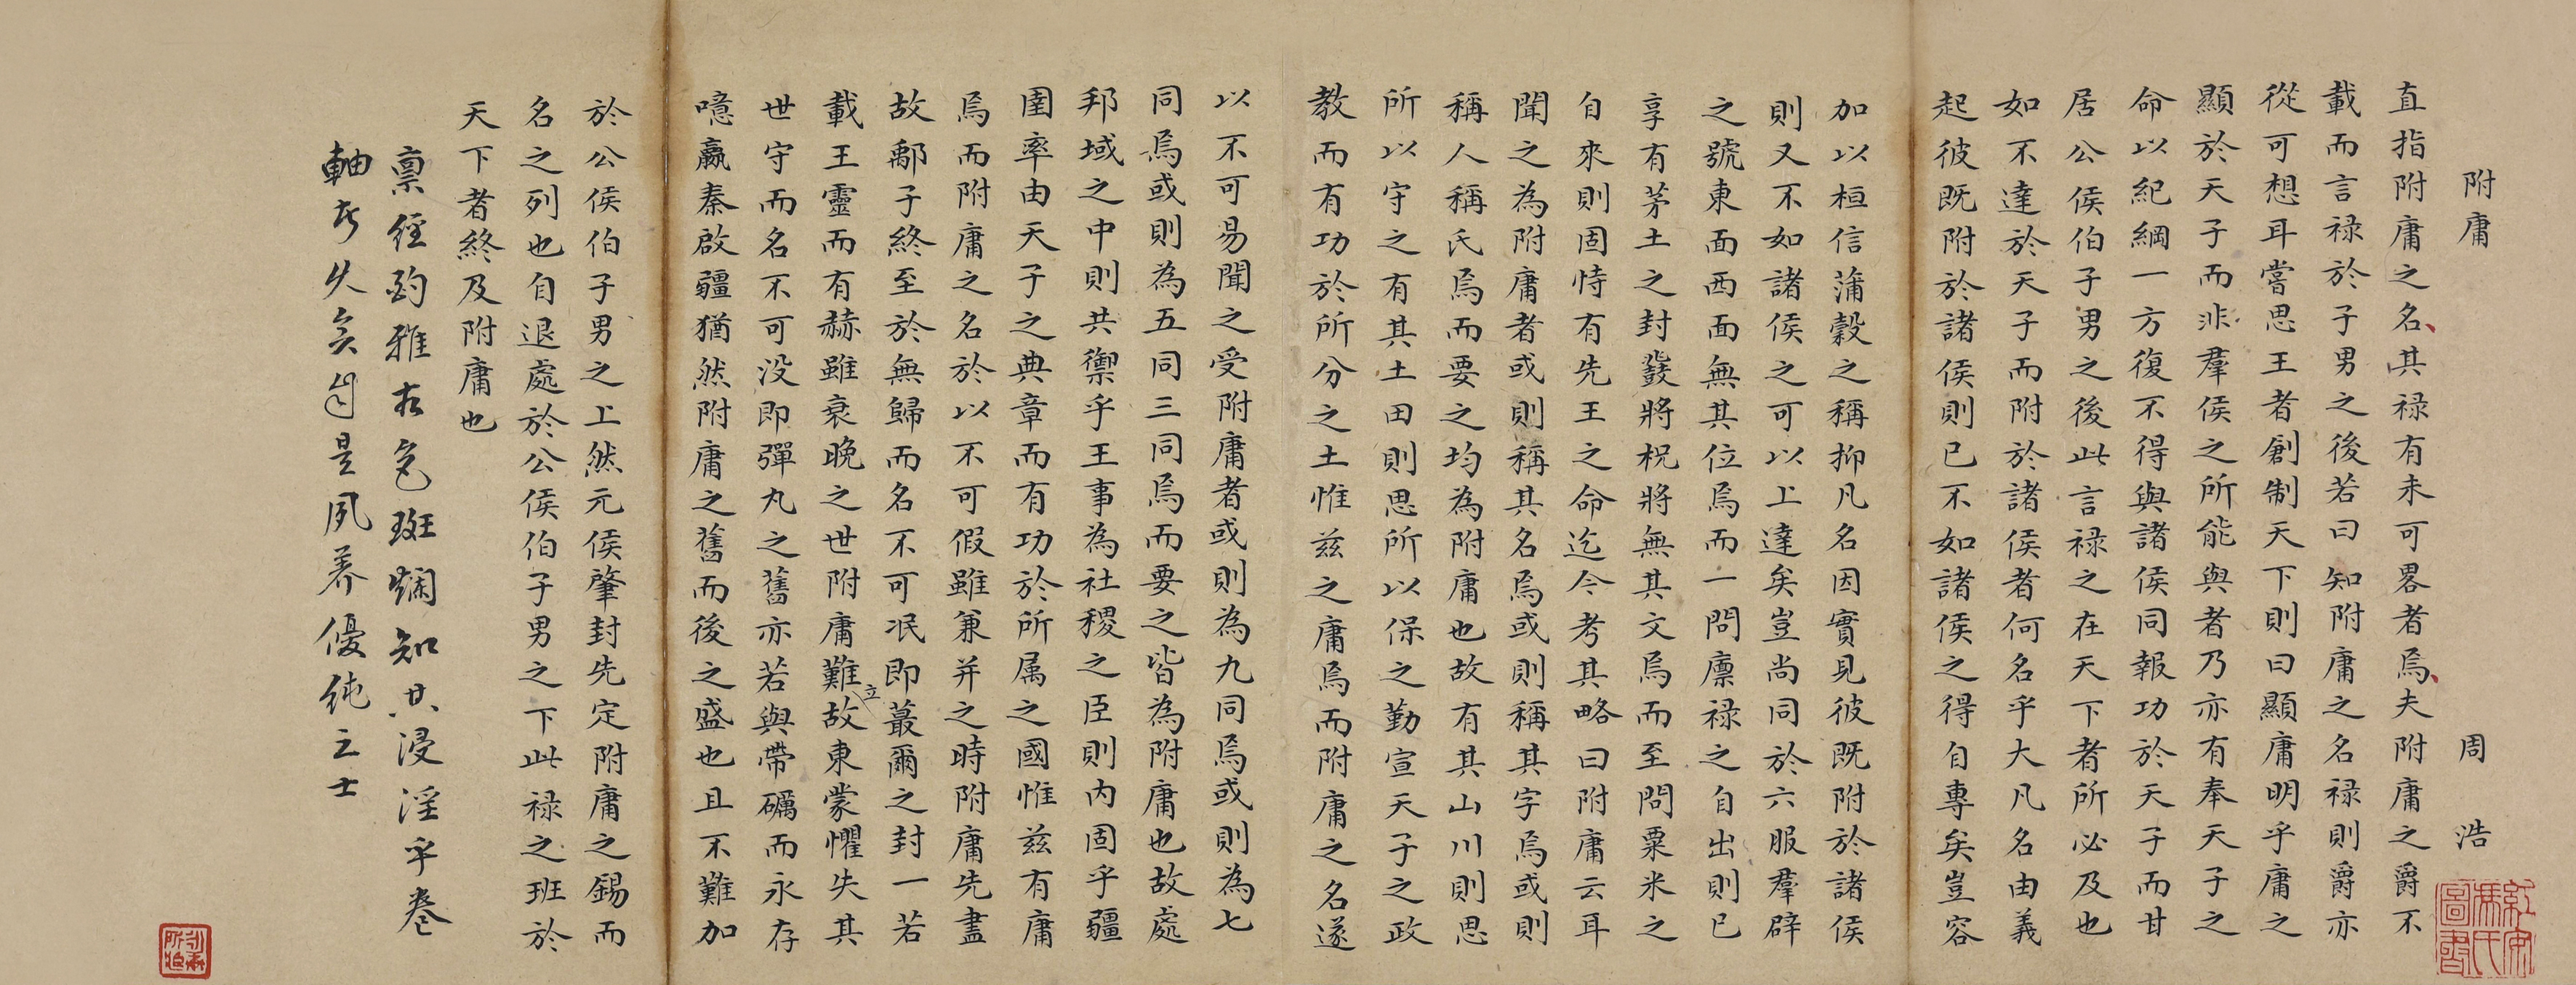 附庸　周浩
直指附庸之名其祿有未可畧者焉夫附庸之爵不
載而言祿於子男之後若曰知附庸之名祿則爵亦
從可想耳嘗思王者創制天下則曰顯庸明乎庸之
顯於天子而非羣侯之所能與者乃亦有奉天子之
命以紀綱一方復不得與諸侯同報功於天子而甘
居公侯伯子男之後此言祿之在天下者所必及也
如不達於天子而附於諸侯者何名乎大凡名由義
起彼既附於諸侯則已不如諸侯之得自專矣豈容
加以桓信蒲穀之稱抑凡名因實見彼既附於諸侯
則又不如諸侯之可以上達矣豈尚同於六服羣辟
之號東面西面無其位焉而一問廩祿之自出則已
享有茅土之封黻將祝將無其文焉而至問粟米之
自來則固恃有先王之命迄今考其略曰附庸云耳
聞之為附庸者或則稱其名焉或則稱其字焉或則
稱人稱氏焉而要之均為附庸也故有其山川則思
所以守之有其土田則思所以保之勤宣天子之政
教而有功於所分之土惟茲之庸焉而附庸之名遂
以不可易聞之受附庸者或則為九同焉或則為七
同焉或則為五同三同焉而要之皆為附庸也故處
邦域之中則共禦乎王事為社稷之臣則內固乎疆
圉率由天子之典章而有功於所属之國惟茲有庸
焉而附庸之名於以不可假雖兼并之時附庸先盡
故鄅子終至於無歸而名不可泯即蕞爾之封一若
載王靈而有赫雖衰晚之世附庸難立故東蒙懼失其
世守而名不可没即彈丸之舊亦若與帶礪而永存
噫嬴秦啟疆猶然附庸之舊而後之盛也且不難加
於公侯伯子男之上然元侯肇封先定附庸之錫而
名之列也自退處於公侯伯子男之下此祿之班於
天下者終及附庸也
稟經酌雅古色斑斕知其浸淫乎卷
軸者久矣自是夙養優純之士